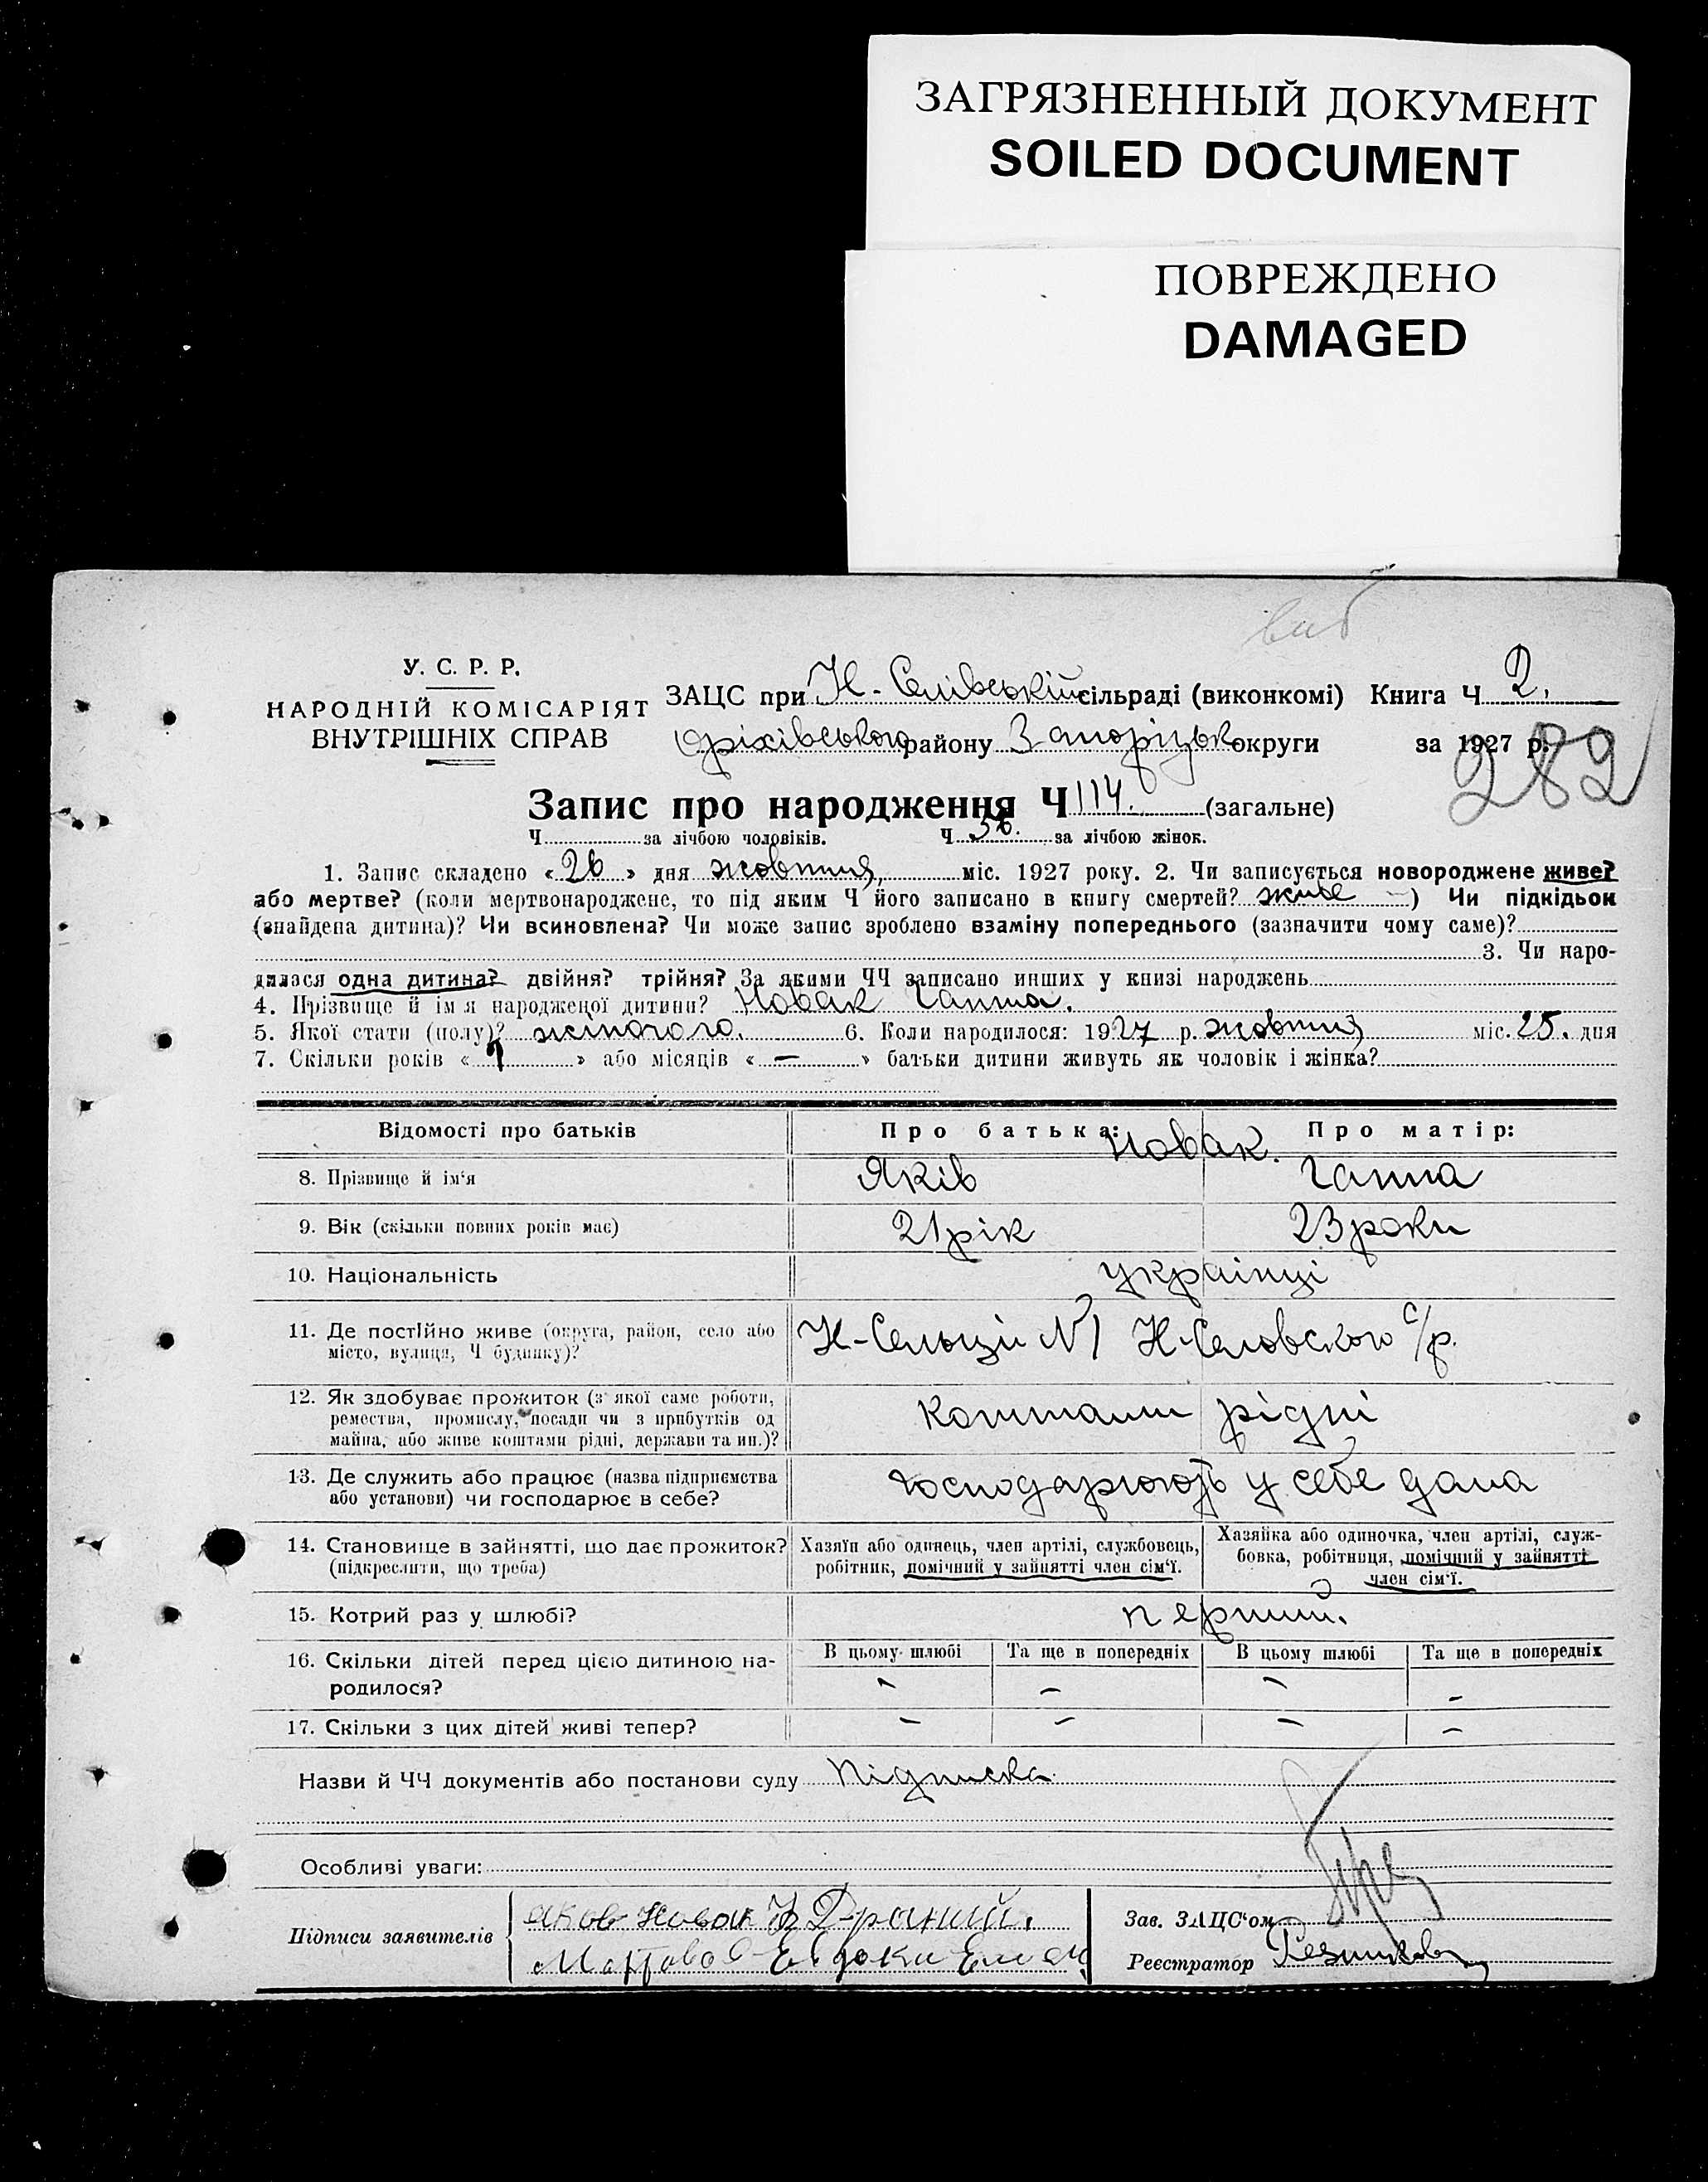 ЗАГРЯЗНЕННЫЙ ДОКУМЕНТ
SOILED DOCUMENT
ПОВРЕЖДЕНО
DAMAGED
У. С. Р. Р.
НАРОДНІЙ КОМІСАРІЯТ
ВНУТРІШНІХ СПРАВ
ЗАЦС при Н-Селівській сільраді (виконкомі) Книга Ч 2.
Оріхівського району Запорізьк округи за 1927 р.
282
Запис про народження Ч 114. (загальне)
Ч за лічбою чоловіків. Ч 56. за лічбою жінок.
1. Запис складено «26» дня жовтня, міс. 1927 року. 2. Чи записується новороджене живе?
або мертве? (коли мертвонароджене, то під яким Ч його записано в книгу смертей? живе —) Чи підкідьок
(знайдена дитина)? Чи всиновлена? Чи може запис зроблено взаміну попереднього (зазначити чому саме)?
3. Чи наро-
дилася одна дитина? двійня? трійня? За якими ЧЧ записано инших у книзі народжень
4. Прізвище й ім я народженої дитини? Новак Ганна.
5. Якої стати (полу)? жіночого. 6. Коли народилося: 1927 р. жовтня міс. 25. дня
7. Скільки років « 1 » або місяців « — » батьки дитини живуть як чоловік і жінка?
Відомості про батьків Про батька: Про матір:
Новак.
8. Прізвище й ім'я Яків Ганна
9. Вік (скільки повних років має) 21 рік 23 роки
10. Національність українці
11. Де постійно живе (округа, район, село або
місто, вулиця, Ч будинку)? Н-Сельці N1 Н-Селовского с/р.
12. Як здобуває прожиток (з якої саме роботи,
ремества, промислу, посади чи з прибутків од
майна, або живе коштами рідні, держави та ин.)? коштами рідні
13. Де служить або працює (назва підприємства
або установи) чи господарює в себе? господарюють у себе дома
14. Становище в зайнятті, що дає прожиток?
(підкреслити, що треба)
Хазяїн або одинець, член артілі, службовець,
робітник, помічний у зайнятті член сім'ї.
Хазяйка або одиночка, член артілі, служ-
бовка, робітниця, помічний у зайнятті
член сім'ї.
15. Котрий раз у шлюбі? перший.
16. Скільки дітей перед цією дитиною на-
родилося?
В цьому шлюбі Та ще в попередніх В цьому шлюбі Та ще в попередніх
— — — —
17. Скільки з цих дітей живі тепер? — — — —
Назви й ЧЧ документів або постанови суду Підписка
Особливі уваги:
Підписи заявителів Яков Новак
Зав. ЗАЦС'ом
Реєстратор